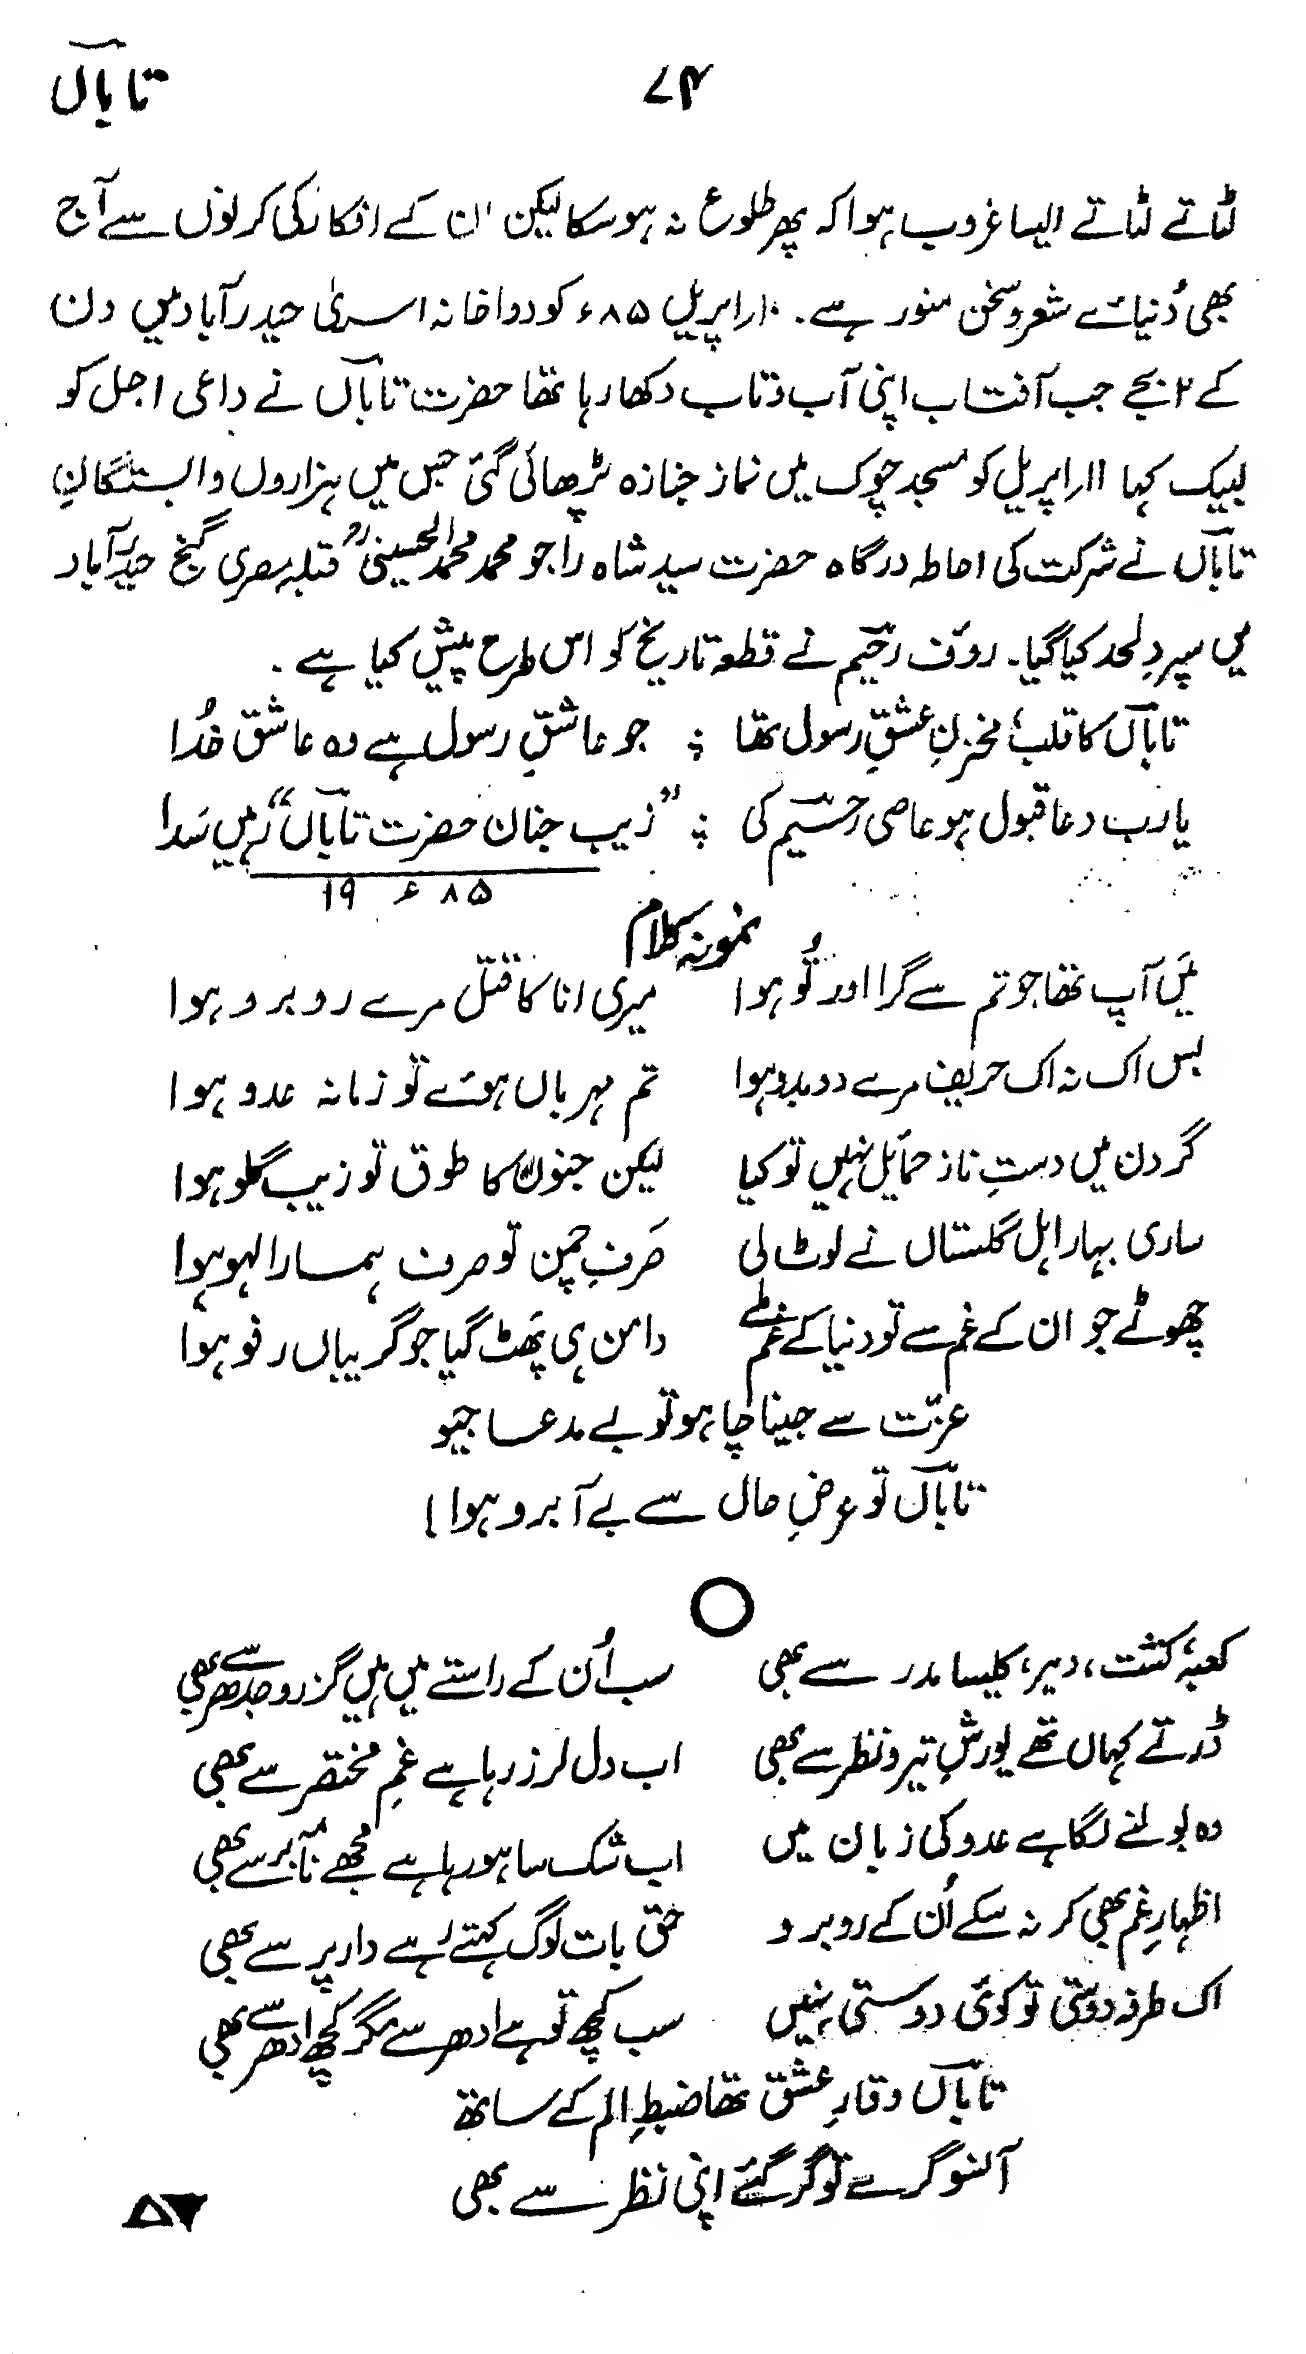 تاباںؔ
۷۴
لٹاتے لٹاتے ایسا غروب ہوا کہ پھر طلوع نہ ہوسکا لیکن ان کے افکار کی کرنوں سے آج
بھی دُنیائے شعر و سخن منور ہے۔ ۱۰ر اپریل ۸۵ء کو دواخانہ اسریٰ حیدرآباد میں دن
کے ۲ بجے جب آفتاب اپنی آب و تاب دکھا رہا تھا حضرت تاباںؔ نے داعی اجل کو
لبیک کہا ۱۱ر اپریل کو مسجد چوک میں نماز جنازہ پڑھائی گئی جس میں ہزاروں وابستگانِ
تاباںؔ نے شرکت کی احاطہ درگاہ حضرت سید شاہ راجو محمد محمد الحسینیؒ قبلہ مصری گنج حیدرآباد
میں سپردِ لحد کیا گیا۔ روف رحیمؔ نے قطعہ تاریخ کو اس طرح پیش کیا ہے۔
تاباںؔ کا قلب مخزنِ عشقِ رسول تھا ؛ جو عاشقِ رسول ہے وہ عاشق خُدا
یارب دعا قبول ہو عاصی رحیمؔ کی ؛ "زیب جنان حضرت تاباںؔ" رہیں سَدا
۱۹ ء ۸۵
نمونہ کلام
مَیں آپ تھا جو تم سے گرا اور تُو ہوا میری انا کا قتل مرے روبرو ہوا
بس اک نہ اک حریف مرے دوبدو ہوا تم مہرباں ہوئے تو زمانہ عدو ہوا
گردن میں دستِ ناز حمائل نہیں تو کیا لیکن جنوں کا طوق تو زیب گلو ہوا
ساری بہار اہل گلستاں نے لوٹ لی صَرفِ چمن تو صرف ہمارا لہو ہوا
چھوٹے جو ان کے غم سے تو دنیا کے غم ملے دامن ہی پھَٹ گیا جو گریباں رفو ہوا
عزّت سے جینا چاہو تو بے مدعا جیو
تاباںؔ تو عرضِ حال سے بے آبرو ہوا!
کعبہ کنشت، دیر، کلیسا مدر سے بھی سب اُن کے راستے میں ہیں گزرو جدھر سے بھی
ڈرتے کہاں تھے یورشِ تیر و نظر سے بھی اب دل لرز رہا ہے غمِ مختصر سے بھی
وہ بولنے لگا ہے عدو کی زبان میں اب شک سا ہو رہا ہے مجھے نامہ بر سے بھی
اظہارِ غم بھی کر نہ سکے اُن کے روبرو حق بات لوگ کہتے رہے دار پر سے بھی
اک طرفہ دوستی تو کوئی دوستی نہیں سب کچھ تو ہے ادھر سے مگر کچھ ادھر سے بھی
تاباںؔ وقارِ عشق تھا ضبطِ الم کے ساتھ
آنسو گرے تو گر گئے اپنی نظر سے بھی